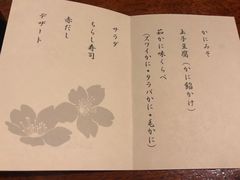 かにみそ
玉子豆腐(かに餡かけ)
茹かに味くらべ
(ズワイかに・タラバかに・毛かに)
サラダ
ちらし寿司
赤だし
デザート